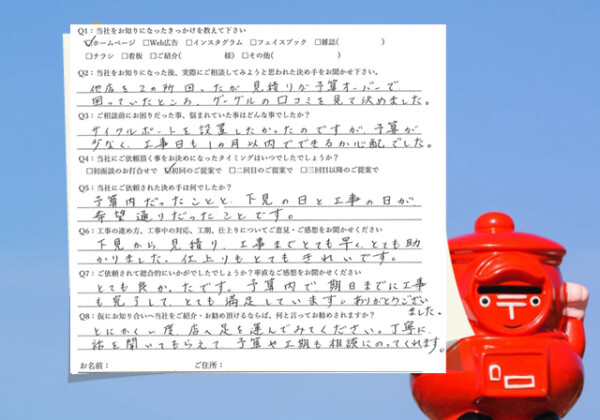 Q1：当社をお知りになったきっかけを教えて下さい
☑ホームページ □Web広告 □インスタグラム □フェイスブック □雑誌( )
□チラシ □看板 □ご紹介( 様) □その他( )
Q2：当社をお知りになった後、実際にご相談してみようと思われた決め手をお聞かせ下さい。
他店を2ヵ所回ったが見積りが予算オーバーで
困っていたところ、グーグルの口コミを見て決めました。
Q3：ご相談前にお困りだった事、悩まれていた事はどんな事でしたか？
サイクルポートを設置したかったのですが、予算が
少なく、工事日も1ヵ月以内でできるか心配でした。
Q4：当社にご依頼頂く事をお決めになったタイミングはいつでしたでしょうか？
□初面談のお打合せで ☑初回のご提案で □二回目のご提案で □三回目以降のご提案で
Q5：当社にご依頼された決め手は何でしたか？
予算内だったことと、下見の日と工事の日が
希望通りだったことです。
Q6：工事の進め方、工事中の対応、工期、仕上りについてご意見・ご感想をお聞かせください
下見から、見積り、工事までとても早く、とても助
かりました。仕上りもとてもきれいです。
Q7：ご依頼されて総合的にいかがでしたでしょうか？率直なご感想をお聞かせください
とても良かったです。予算内で期日までに工事
も完了して、とても満足しています。ありがとうござい
ました。
Q8：仮にお知り合いへ当社をご紹介・お勧め頂けるならば、何と言ってお勧めされますか？
とにかく一度店へ足を運んでみてください。丁寧に、
話を聞いてもらえて、予算や工期も相談にのってくれます。
お名前： ご住所：
〒